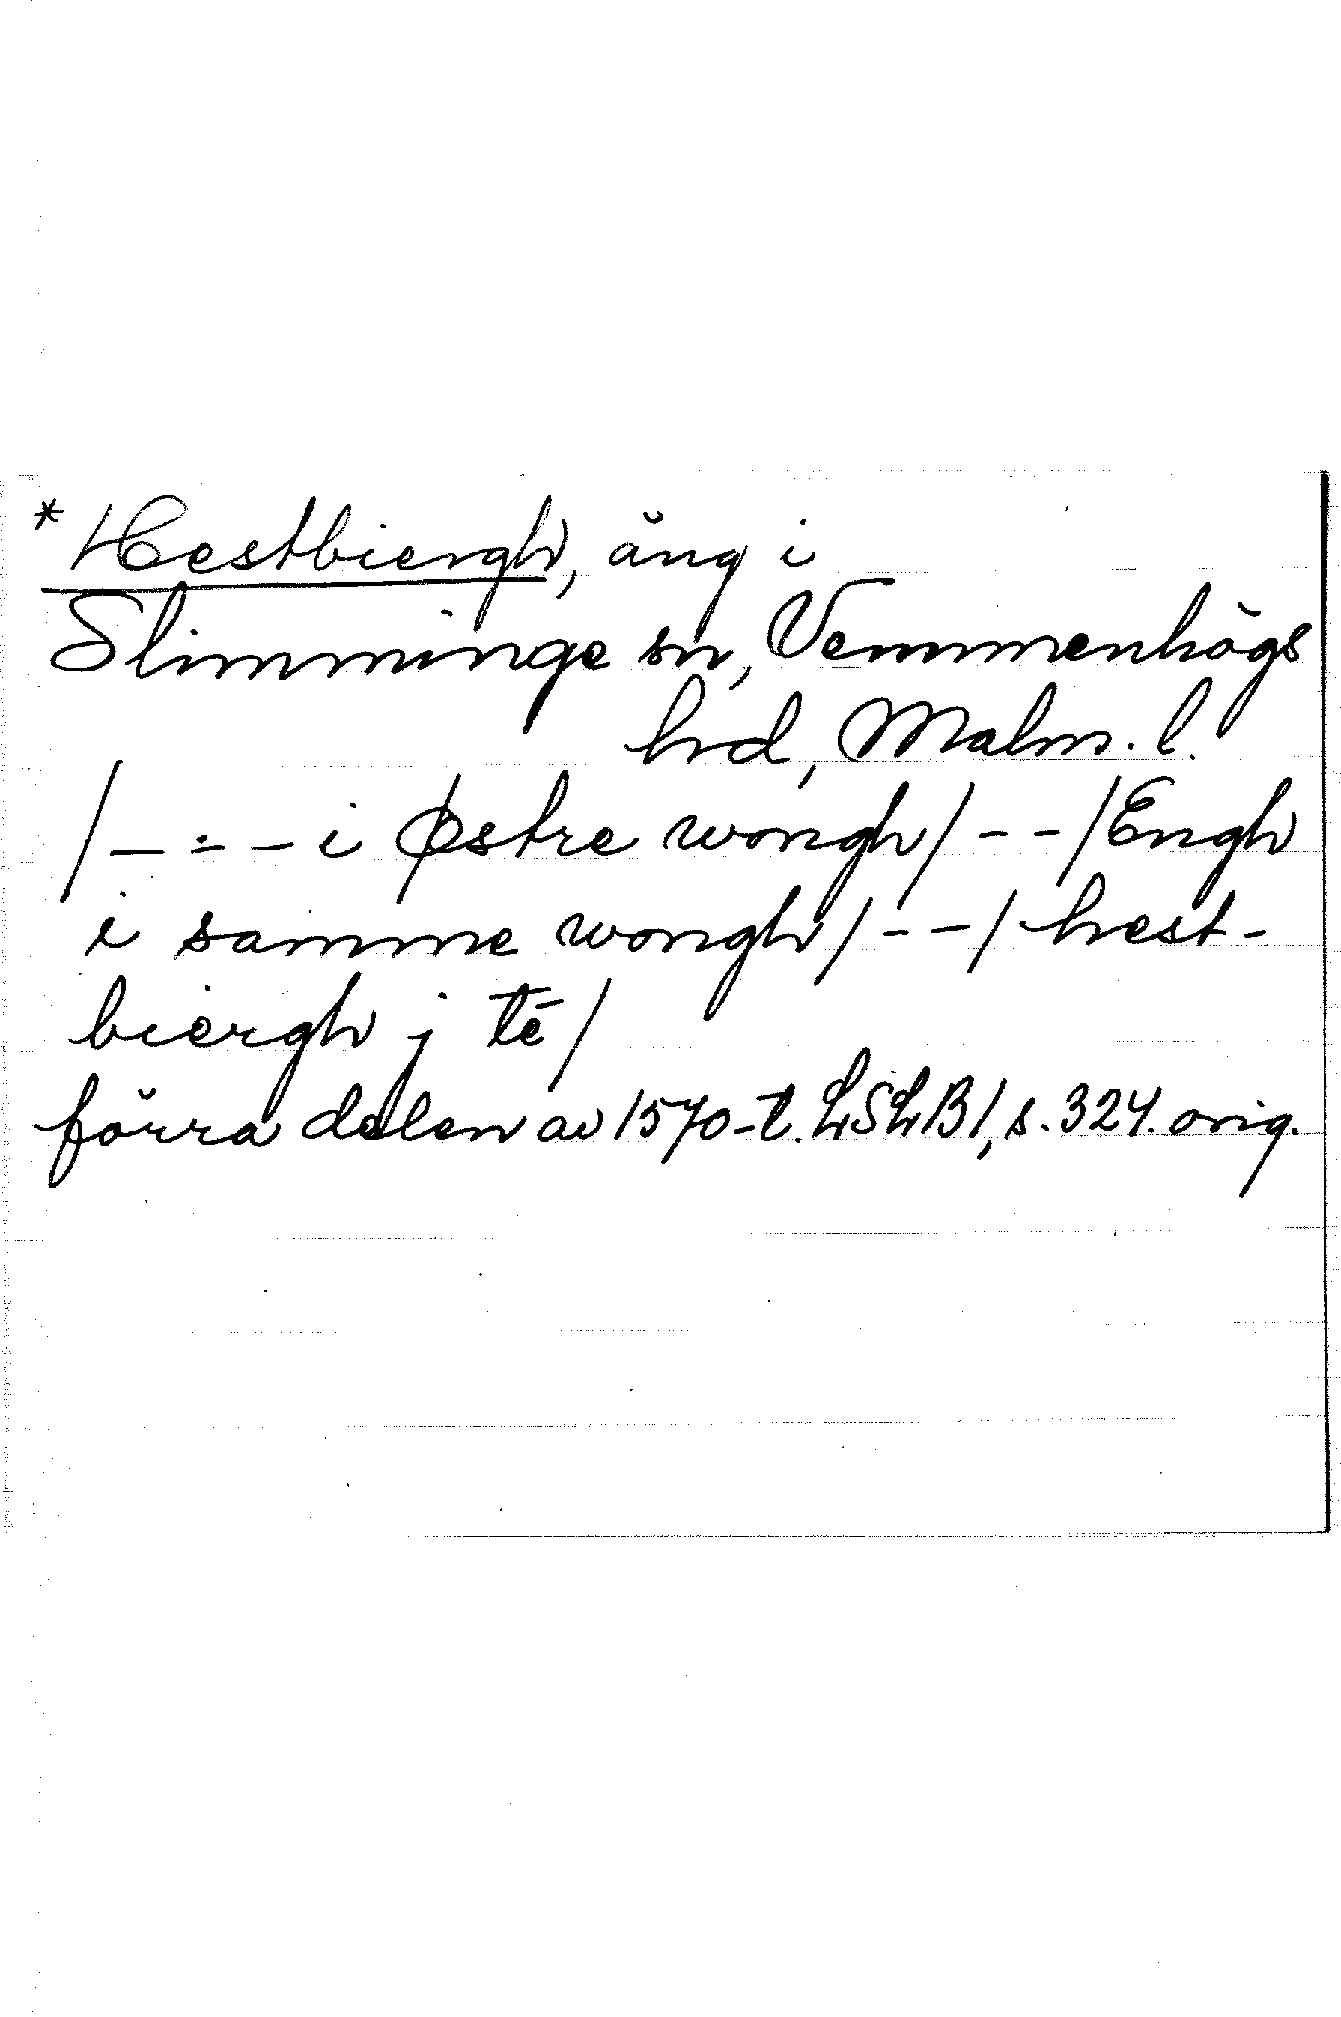 *Hestbiergh, äng i
Slimminge sn, Vemmenhögs
hd, Malm. l.
/- - - i Østre wongh/ - - /Engh
i samme wongh/ - - / hest-
biergh j tē/
förra delen av 1570-t. LSLB1, s. 324. orig.